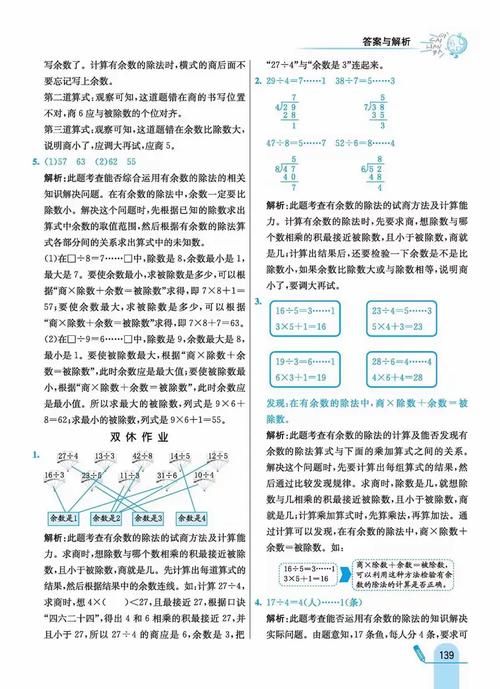 答案与解析
写余数了。计算有余数的除法时,横式的商后面不
要忘记写上余数。
第二道算式:观察可知,这道题错在商的书写位置
不对,商6应与被除数的个位对齐。
第三道算式:观察可知,这道题错在余数比除数大,
说明商小了,应调大再试,应商5。
5. (1)57 63 (2)62 55
解析:此题考查能否综合运用有余数的除法的相关
知识解决问题。在有余数的除法中,余数一定要比
除数小。解决这个问题时,先根据已知的除数求出
算式中余数的取值范围,然后根据有余数的除法算
式各部分间的关系求出算式中的未知数。
(1)在□÷8=7……□中,除数是8,余数最小是1,
最大是7。要使余数最小,求被除数是多少,可以根
据“商×除数+余数=被除数”求得,即7×8+1=
57;要使余数最大,求被除数是多少,可以根据
“商×除数+余数=被除数”求得,即7×8+7=63。
(2)在□÷9=6……□中,除数是9,余数最大是8,
最小是1。要使被除数最大,根据“商×除数+余
数=被除数”,此时余数应是最大值;要使被除数最
小,根据“商×除数+余数=被除数”,此时余数应
是最小值。所以求最大的被除数,列式是9×6+
8=62;求最小的被除数,列式是9×6+1=55。
双休作业
1. 27÷4 13÷3 42÷8 14÷5 12÷5
16÷3 23÷5 11÷3 31÷6 10÷4
余数是1 余数是2 余数是3 余数是4
解析:此题考查有余数的除法的试商方法及计算能
力。求商时,想除数与哪个数相乘的积最接近被除
数,且小于被除数,商就是几。先计算出每道算式的
结果,然后根据结果中的余数连线。如:计算27÷4,
求商时,想4×( )<27,且最接近27,根据口诀
“四六二十四”,得出4和6相乘的积最接近27,并
且小于27,所以27÷4的商应是6,余数是3,把
“27÷4”与“余数是3”连起来。
2. 29÷4=7……1 38÷7=5……3
7 5
4 29 7 38
28 35
1 3
47÷8=5……7 52÷6=8……4
5 8
8 47 6 52
40 48
7 4
解析:此题考查有余数的除法的试商方法及计算能
力。计算有余数的除法时,先要求商,想除数与哪
个数相乘的积最接近被除数,且小于被除数,商就
是几;计算出结果后,还要检验一下余数是不是比
除数小,如果余数比除数大或与除数相等,说明商
小了,要调大再试。
3. 16÷5=3……1 23÷4=5……3
3×5+1=16 5×4+3=23
19÷3=6……1 28÷6=4……4
6×3+1=19 4×6+4=28
发现:在有余数的除法中,商×除数+余数=被
除数。
解析:此题考查有余数的除法的计算及能否发现有
余数的除法算式与下面的乘加算式之间的关系。
解决这个问题时,先要计算出每组算式的结果,然
后通过比较发现规律。求商时,除数是几,就想除
数与几相乘的积最接近被除数,且小于被除数,商
就是几;计算乘加算式时,先算乘法,再算加法。通
过计算可以发现,在有余数的除法中,商×除数+
余数=被除数。如:
16÷5=3……1
3×5+1=16
商×除数+余数=被除数,
可以利用这种方法检验有余
数的除法的计算是否正确。
4. 17÷4=4(人)……1(条)
解析:此题考查能否运用有余数的除法的知识解决
实际问题。由题意知,17条鱼,每人分4条,要求可
139